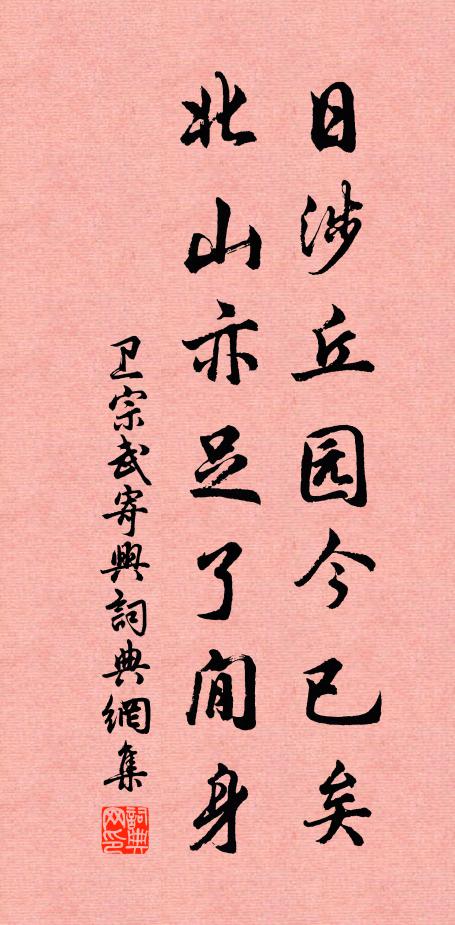 日涉丘园今已矣
北山亦足了闲身
卫宗武寄興詞典網集
詞典网印